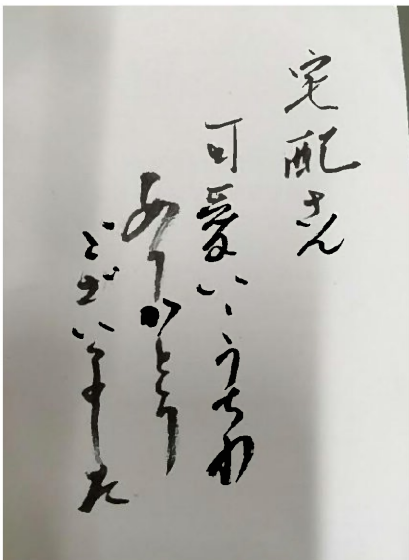 宅配さん
可愛いうちわ
ありがとう
ございました